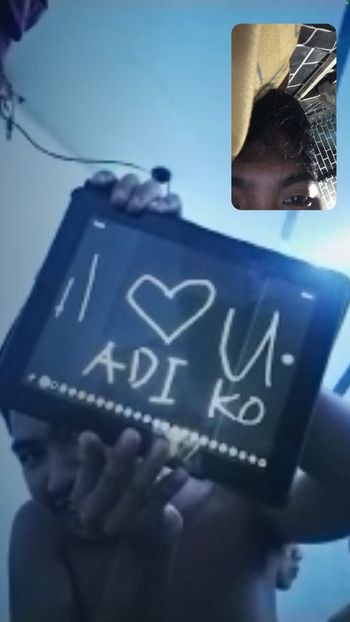 I ♡ U.
ADI KO